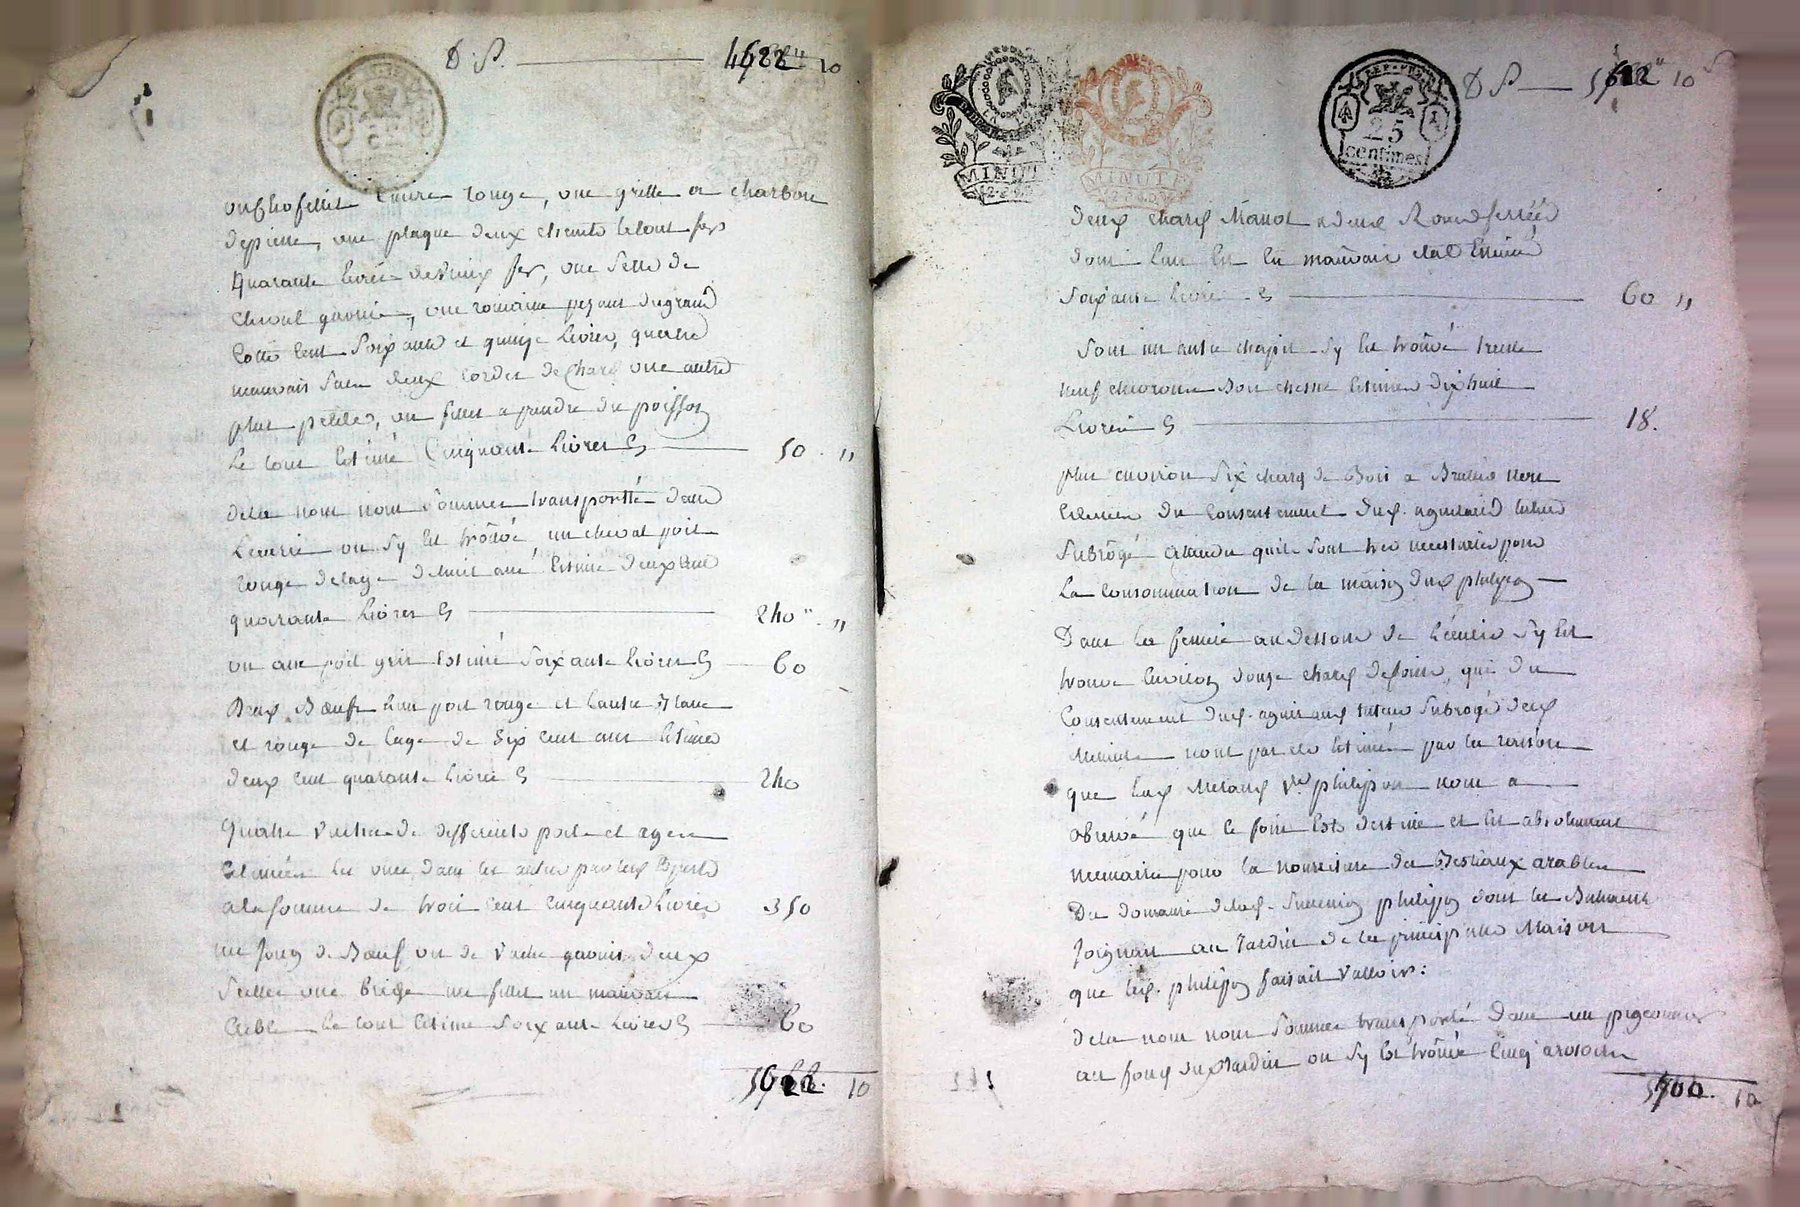 D P. 4622 10
un chofellit cuivre rouge, une grille a charbon
de pierre, une plaque deux chenets le tout fer
quarante livres de vieux fer, une selle de
cheval garnie, une romaine pezant du grand
cotté cent soixante et quinze livres, quattre
mauvais sacs deux cordes de chard une autre
plus petitte, un fillet a prendre du poisson
le tout estimé cinquante livres 50 "
dela nous nous sommes transportté dans
lecurie ou sy est trouvé un cheval poil
rouge delage de huit ans estimé deux cent
quarante livres 240 "
un ane poil gris estimé soixante livres 60
Deux Bœufs lun poil rouge et lautre Blanc
et rouge de lage de six sept ans estimés
deux cent quarante livres 240
quattre vaches de differents poils et agés
estimées les unes dans les autres par les experts
a la somme de trois cent cinquante livres 350
un joug de Bœuf ou de vache garnis deux
selles une bride un fillet un mauvais
crible le tout estimé soixante livres 60
5622. 10
D P 5622 10 s
REP. FRA.
25
centimes
MINUTE
MINUTE
deux chars Manot a deux Roues ferrées
dont lun est en mauvais etat estimé
soixante livres 60 "
sous un autre chapit sy est trouvé trente
neuf chevrons Bois chesne estimés dix huit
Livres 18.
plus environ six chars de Bois a Bruler non
estimés du consentement du tuteur
subrogé attendu quils sont tres necessaires pour
la consommation de la maison philipon
Dans la feniere au dessous de lécurie sy est
trouvé environ douze chars de foin, qui du
consentement tuteur subrogé
nont pas été estimés par la raison
que Melanf Ve. philipon nous a
observé que le foin est destiné et est absolument
necessaire pour la nourriture des Bestiaux arables
Du domaine philipon dont les Batiments
joignant au jardin de la principalle Maison
que philipon faisait valloir:
dela nous nous sommes transporté dans un pigeonnier
au fond du jardin ou sy est trouvé cinq arosoirs
5700. 10